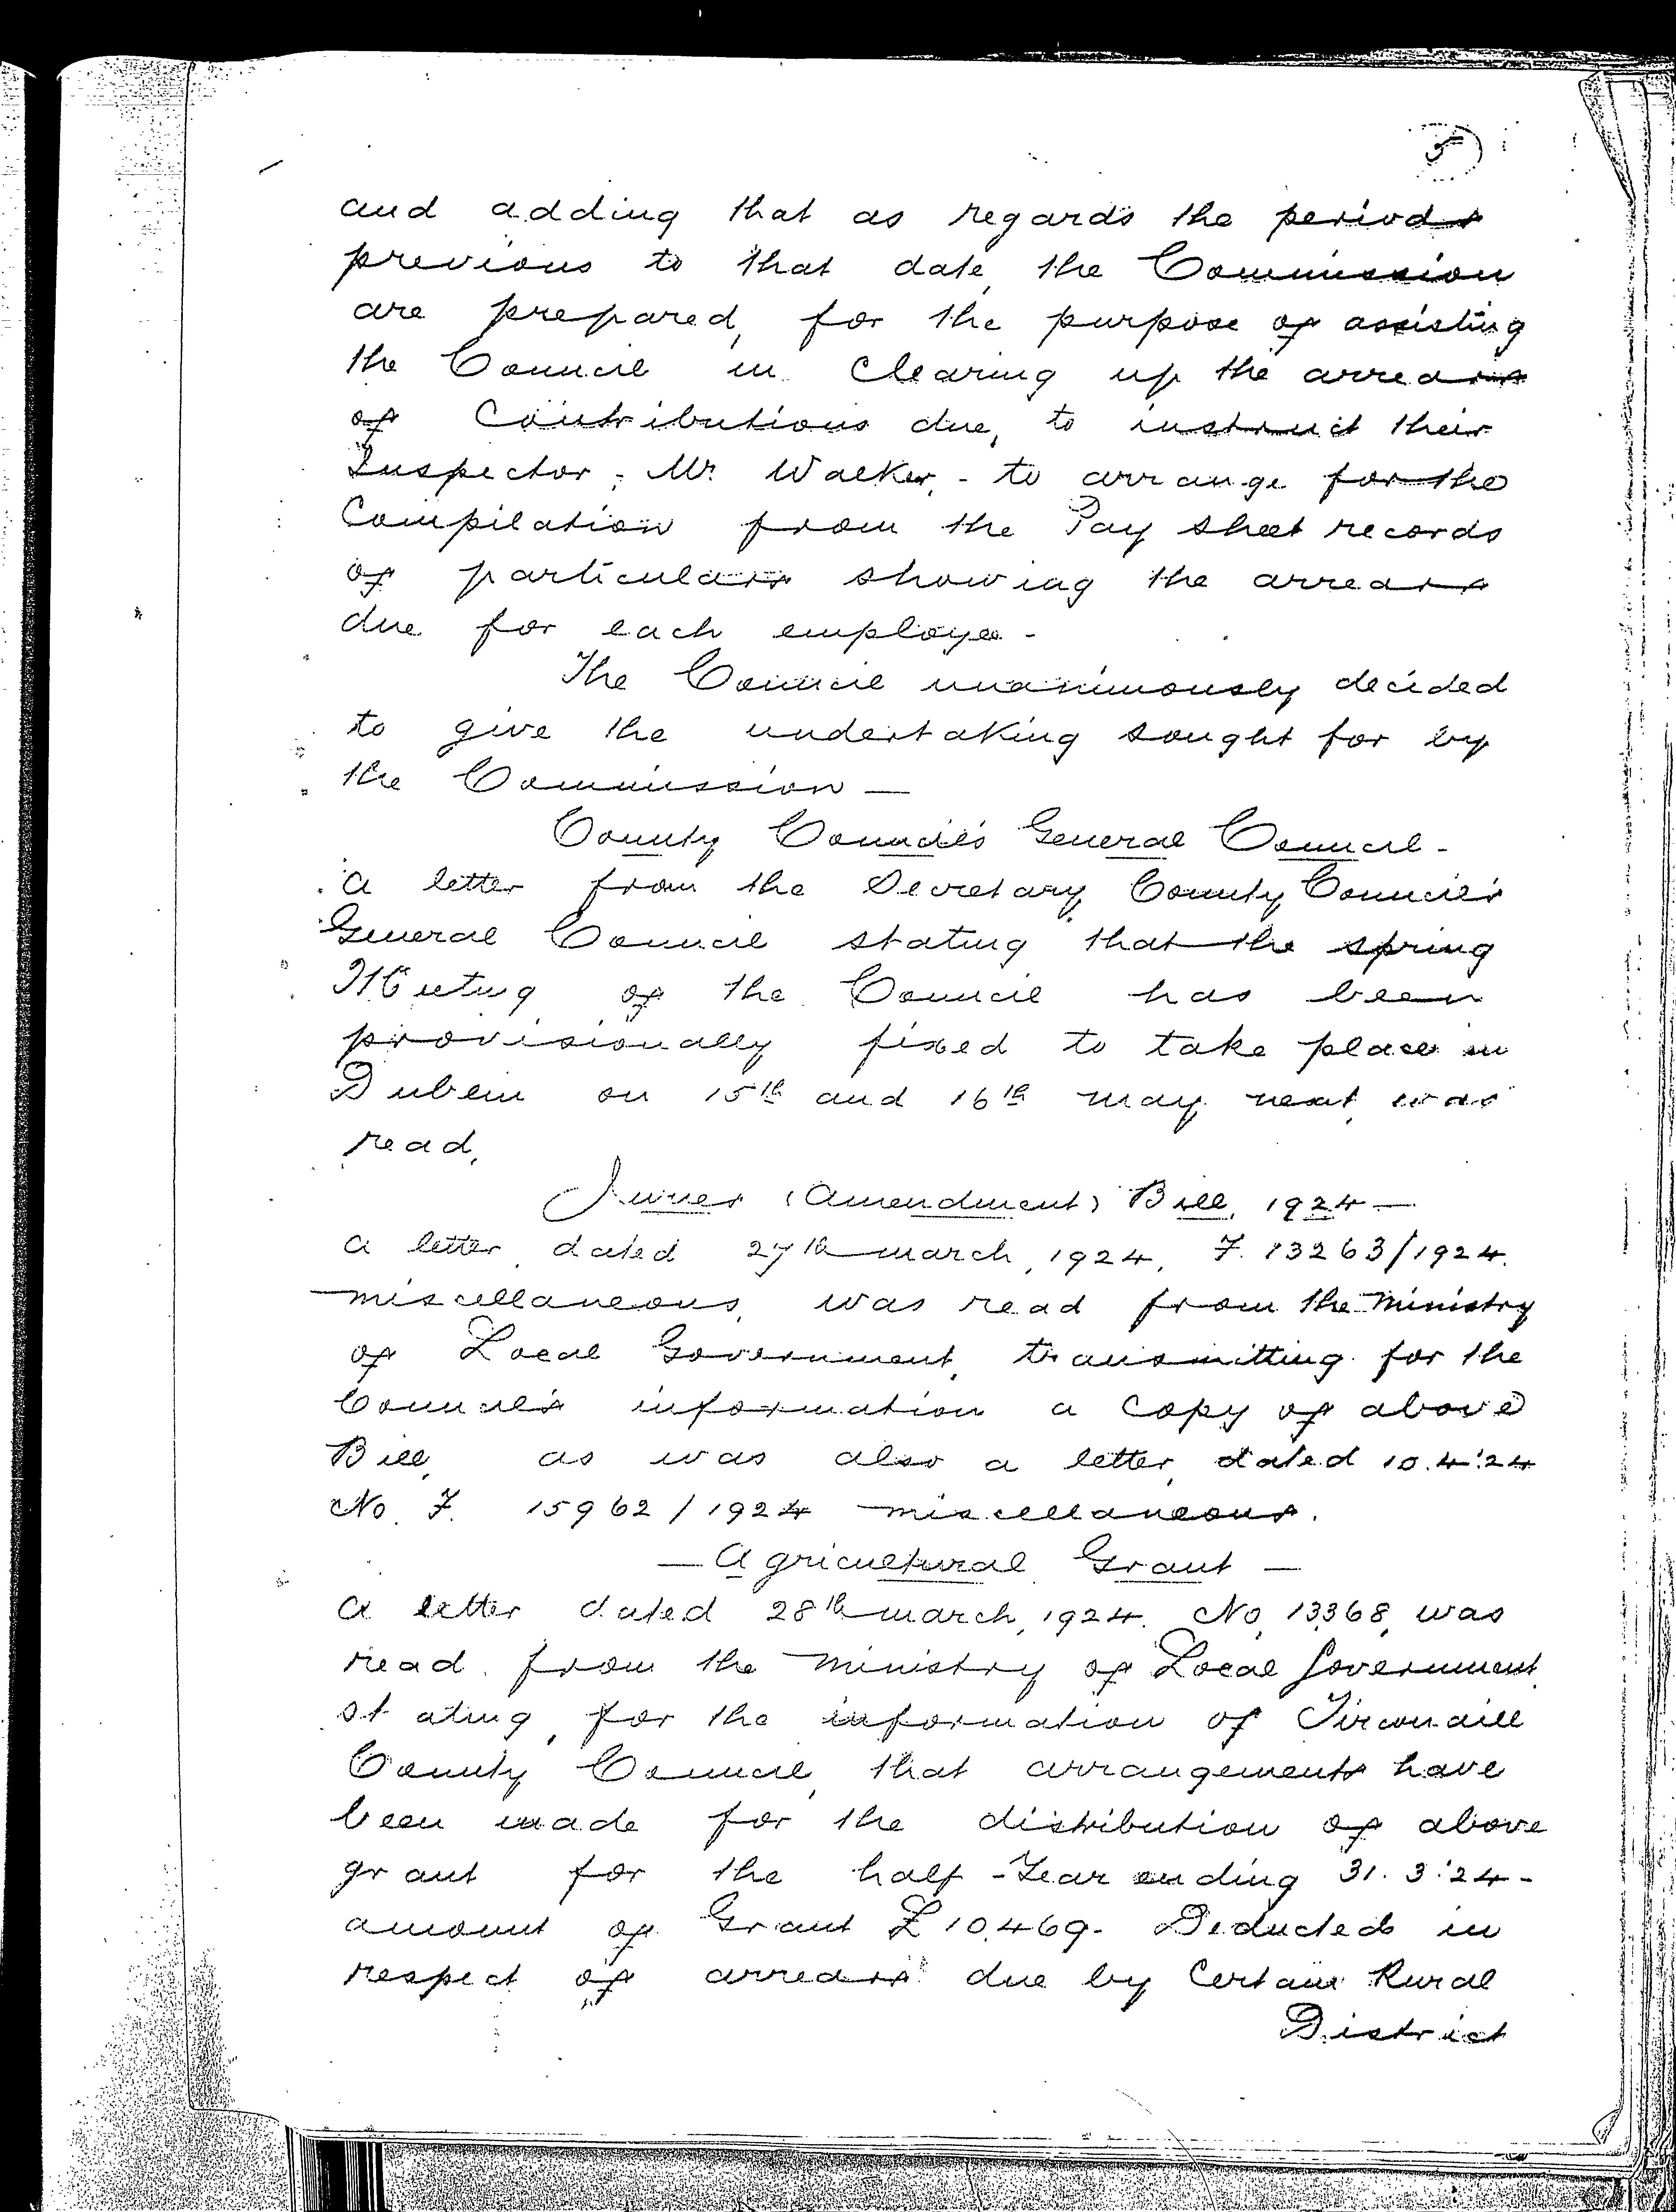 5
and adding that as regards the periods
previous to that date, the Commission
are prepared, for the purpose of assisting
the Council in clearing up the arrears
of Contributions due, to instruct their
Inspector, - Mr. Walker, - to arrange for the
Compilation from the Pay sheet records
of particulars showing the arrears
due for each employee -
The Council unanimously decided
to give the undertaking sought for by
the Commission —
County Council's General Council -
A letter from the Secretary County Council's
General Council stating that the spring
Meeting of the Council has been
provisionally fixed to take place in
Dublin on 15th and 16th May next, was
read.
Juries (Amendment) Bill, 1924 —
A letter dated 27th March, 1924, F. 13263/1924.
Miscellaneous, was read from the Ministry
of Local Government, transmitting for the
Council's information a copy of above
Bill, as was also a letter, dated 10.4.'24
No. F. 15962/1924 Miscellaneous.
— Agricultural Grant —
A letter dated 28th March, 1924. No. 13368, was
read from the Ministry of Local Government
stating, for the information of Tirconaill
County Council, that arrangements have
been made for the distribution of above
grant for the half-Year ending 31.3.'24 -
amount of Grant £10,469 - Deducted in
respect of arrears due by Certain Rural
District